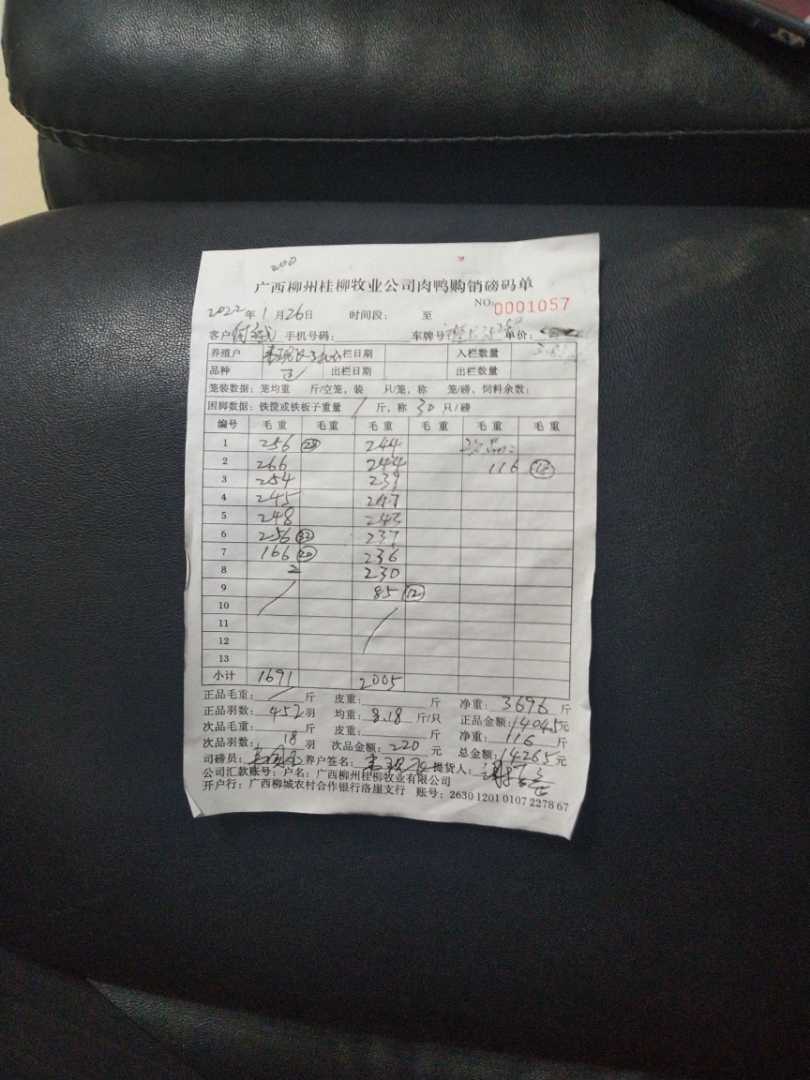 200
广西柳州桂柳牧业公司肉鸭购销磅码单
NO: 0001057
2022年 1月26日 时间段: 至
客户 手机号码: 车牌号: 单价:
养殖户 入栏日期 入栏数量
品种 出栏日期 出栏数量
笼装数据: 笼均重 斤/空笼, 装 只/笼, 称 笼/磅、饲料余数:
困脚数据: 铁篼或铁板子重量 1 斤, 称 30 只/磅
编号 毛重 毛重 毛重 毛重 毛重 毛重
1 256 244 次品:
2 266 244 116 18
3 254 239
4 245 247
5 248 243
6 256 237
7 166 20 236
8 2 230
9 85 12
10
11
12
13
小计 1691 2005
正品毛重: 斤 皮重: 斤 净重: 3696 斤
正品羽数: 452 羽 均重: 8.18 斤/只 正品金额: 14045元
次品毛重: 斤 皮重: 斤 净重: 116 斤
次品羽数: 18 羽 次品金额: 220 元 总金额: 14265元
司磅员: 养户签名: 提货人:
公司汇款账号: 户名: 广西柳州桂柳牧业有限公司
开户行: 广西柳城农村合作银行洛崖支行 账号: 2630 1201 0107 2278 67